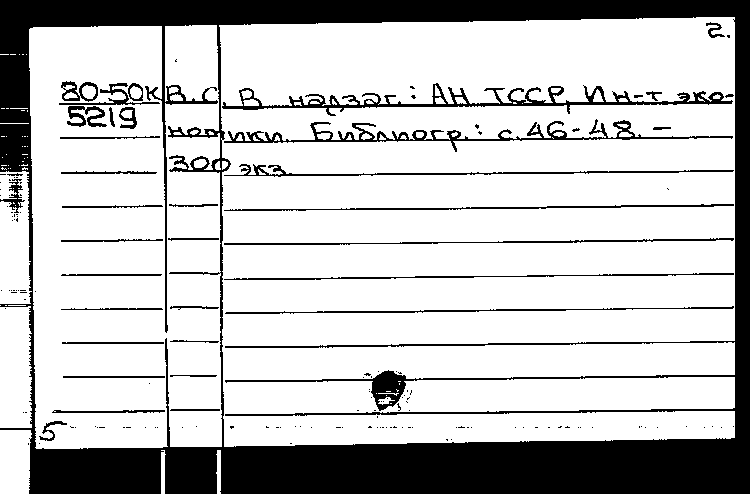 2.
80-50к В.С. В надзаг.: АН ТССР, Ин-т эко-
5219 номики. Библиогр.: с. 46-48. –
300 экз.
5